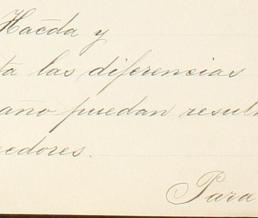 Hacda y
ta las diferencias
año puedan resul
edores.
Para